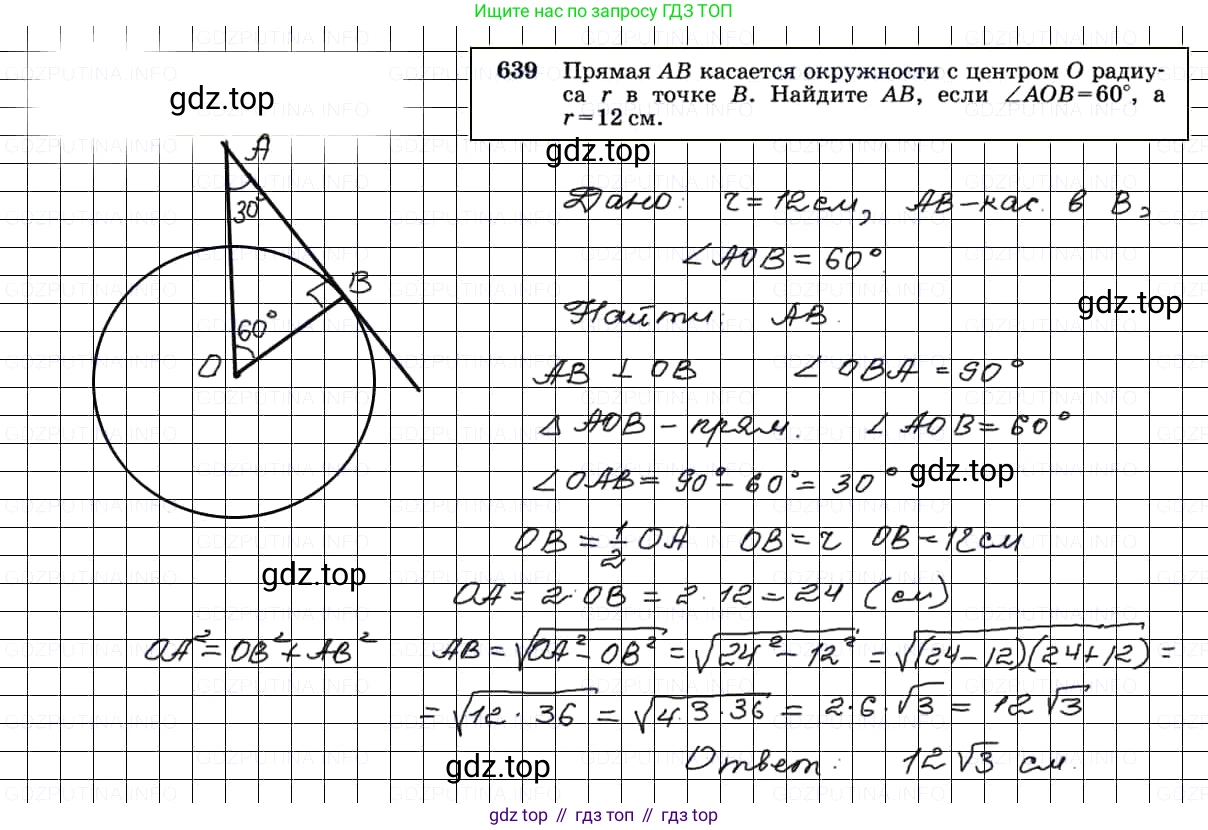 Ищите нас по запросу ГДЗ ТОП
639 Прямая AB касается окружности с центром O радиу-
са r в точке B. Найдите AB, если ∠AOB=60°, а
r=12 см.
gdz.top
gdz.top
A
30°
B
60°
O
Дано: r = 12 см, AB – кас. в B,
∠AOB = 60°
Найти: AB.
gdz.top
AB ⊥ OB ∠OBA = 90°
△ AOB – прям. ∠AOB = 60°
∠OAB = 90° – 60° = 30°
gdz.top
OB = 1/2 OA OB = r OB = 12 см
gdz.top
OA = 2·OB = 2·12 = 24 (см)
OA² = OB² + AB² AB = √(OA² – OB²) = √(24² – 12²) = √((24–12)(24+12)) =
= √(12·36) = √(4·3·36) = 2·6·√3 = 12√3
gdz.top
Ответ: 12√3 см.
gdz top // гдз топ // gdz top